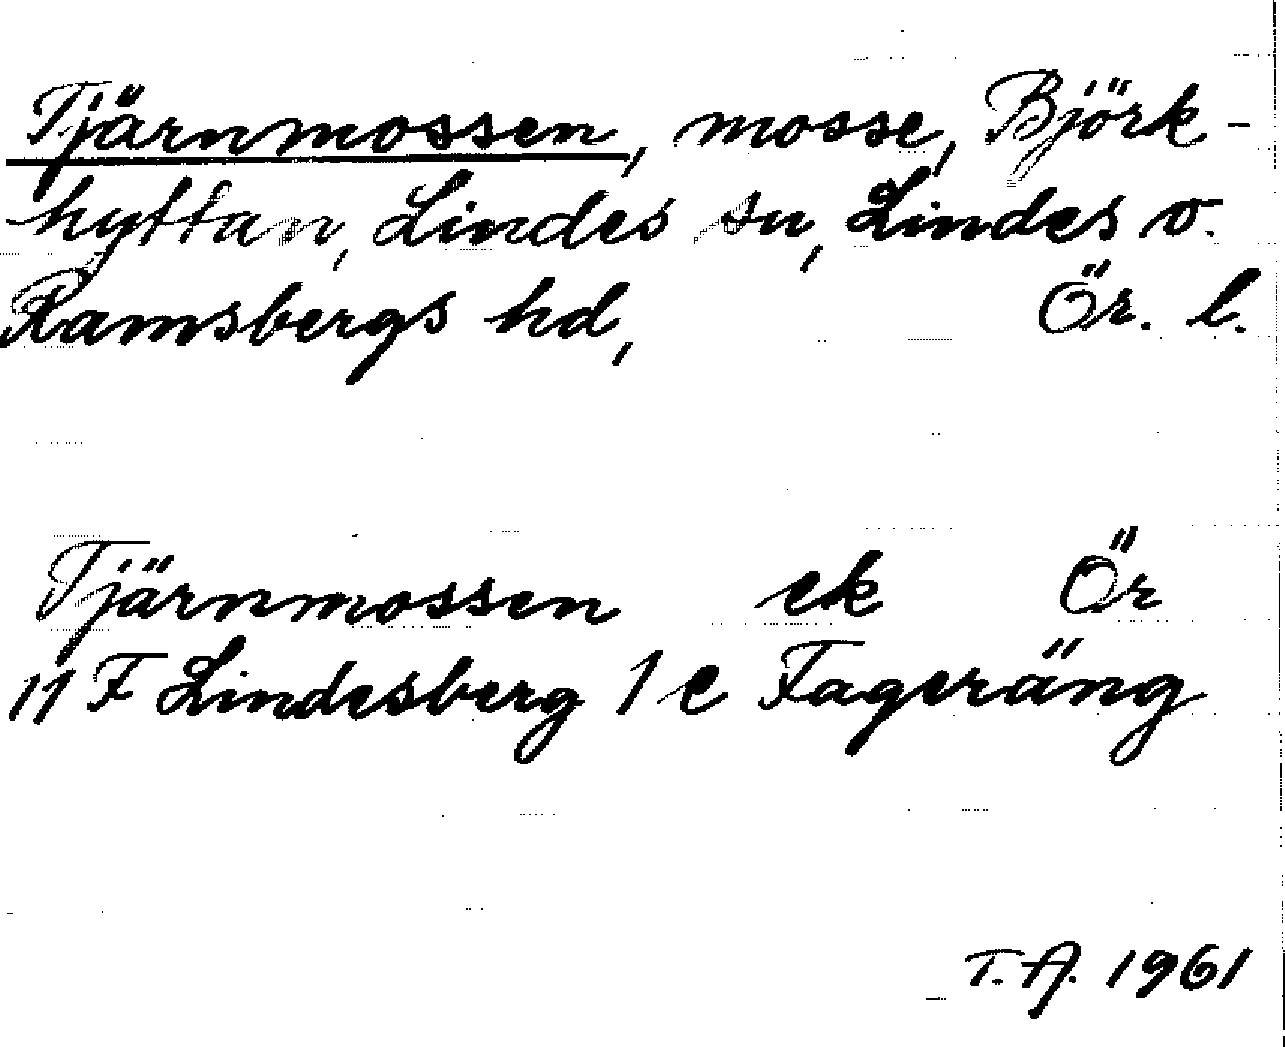 Tjärnmossen, mosse, Björk-
hyttan, Lindes sn, Lindes o.
Ramsbergs hd, Ör. l.
Tjärnmossen ek Ör
11 F Lindesberg 1 e Fageräng
T.A. 1961